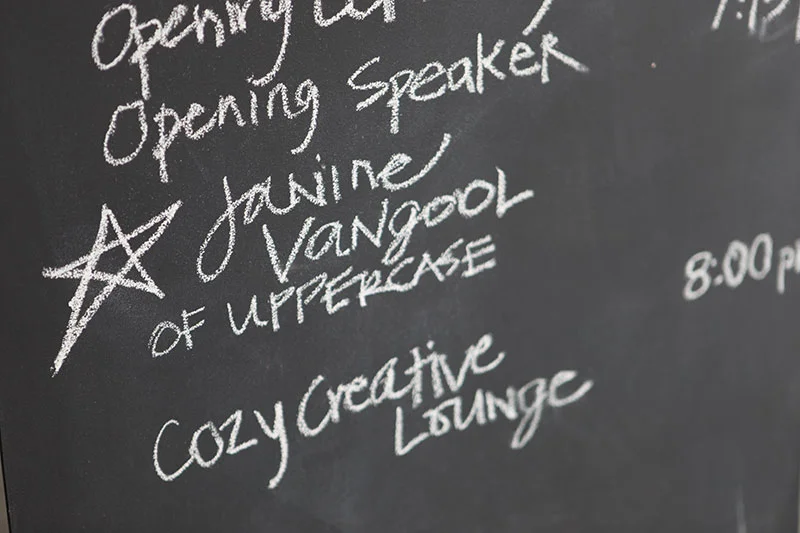 Opening
Opening Speaker
Janine
Vangool
OF UPPERCASE
8:00
Cozy Creative
Lounge